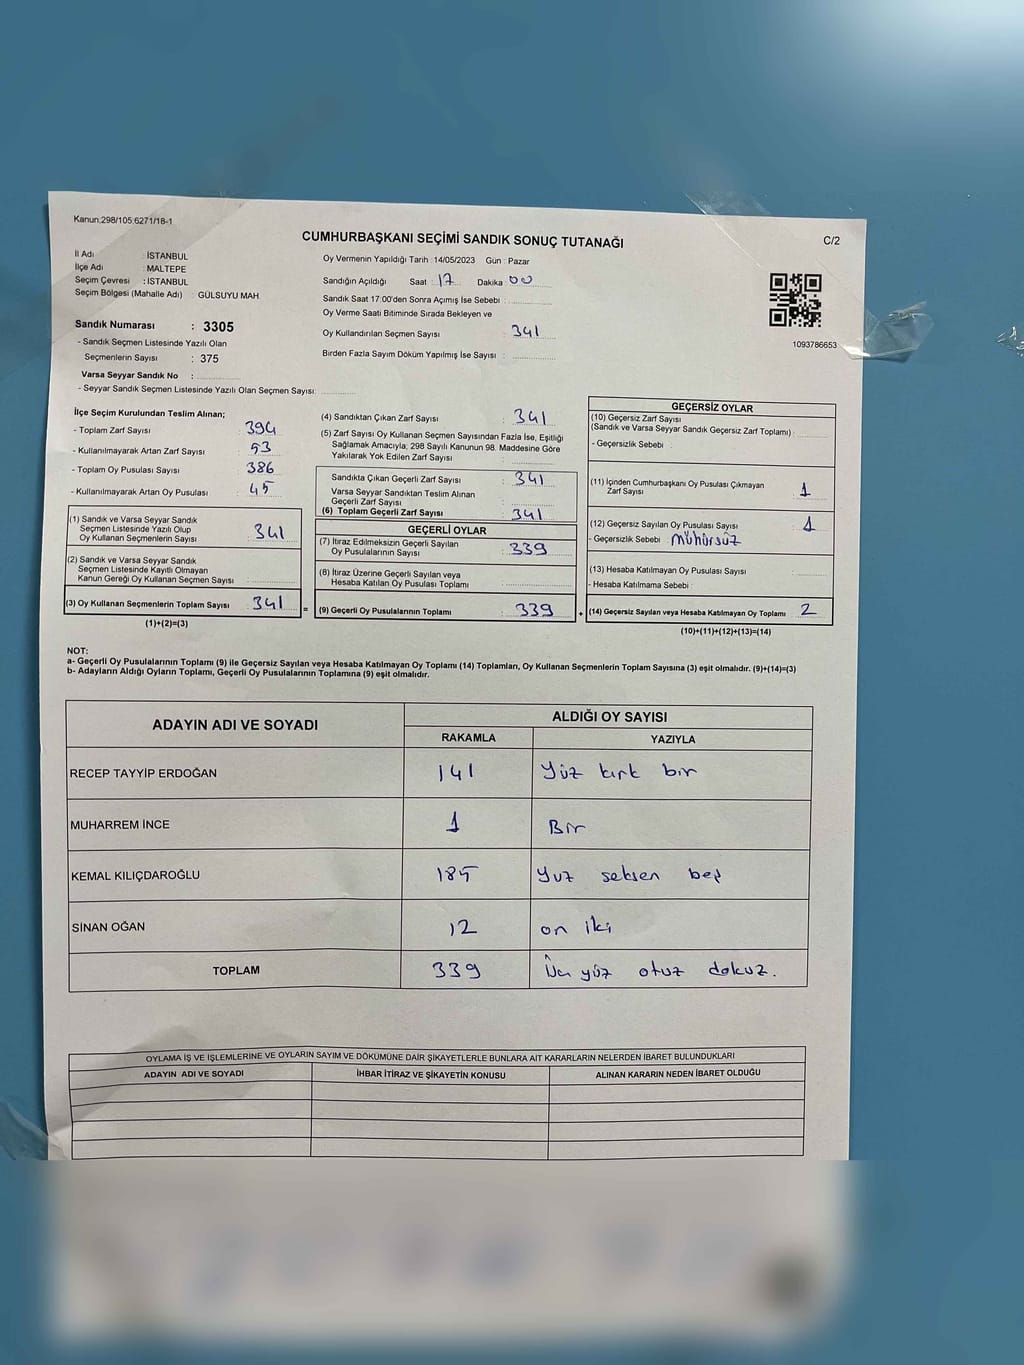 Kanun:298/105;6271/18-1
CUMHURBAŞKANI SEÇİMİ SANDIK SONUÇ TUTANAĞI
C/2
İl Adı : İSTANBUL
İlçe Adı : MALTEPE
Seçim Çevresi : İSTANBUL
Seçim Bölgesi (Mahalle Adı) : GÜLSUYU MAH
Sandık Numarası : 3305
- Sandık Seçmen Listesinde Yazılı Olan
Seçmenlerin Sayısı : 375
Varsa Seyyar Sandık No :
- Seyyar Sandık Seçmen Listesinde Yazılı Olan Seçmen Sayısı:
Oy Vermenin Yapıldığı Tarih : 14/05/2023 Gün : Pazar
Sandığın Açıldığı Saat : 17 Dakika : 00
Sandık Saat 17:00'den Sonra Açımış İse Sebebi :
Oy Verme Saati Bitiminde Sırada Bekleyen ve
Oy Kullandırılan Seçmen Sayısı : 341
Birden Fazla Sayım Döküm Yapılmış İse Sayısı :
1093786653
İlçe Seçim Kurulundan Teslim Alınan;
- Toplam Zarf Sayısı : 394
- Kullanılmayarak Artan Zarf Sayısı : 53
- Toplam Oy Pusulası Sayısı : 386
- Kullanılmayarak Artan Oy Pusulası : 45
(1) Sandık ve Varsa Seyyar Sandık
Seçmen Listesinde Yazılı Olup
Oy Kullanan Seçmenlerin Sayısı : 341
(2) Sandık ve Varsa Seyyar Sandık
Seçmen Listesinde Kayıtlı Olmayan
Kanun Gereği Oy Kullanan Seçmen Sayısı :
(3) Oy Kullanan Seçmenlerin Toplam Sayısı : 341
(1)+(2)=(3)
=
(4) Sandıktan Çıkan Zarf Sayısı : 341
(5) Zarf Sayısı Oy Kullanan Seçmen Sayısından Fazla İse, Eşitliği
Sağlamak Amacıyla; 298 Sayılı Kanunun 98. Maddesine Göre
Yakılarak Yok Edilen Zarf Sayısı :
Sandıkta Çıkan Geçerli Zarf Sayısı : 341
Varsa Seyyar Sandıktan Teslim Alınan
Geçerli Zarf Sayısı :
(6) Toplam Geçerli Zarf Sayısı : 341
GEÇERLİ OYLAR
(7) İtiraz Edilmeksizin Geçerli Sayılan
Oy Pusulalarının Sayısı : 339
(8) İtiraz Üzerine Geçerli Sayılan veya
Hesaba Katılan Oy Pusulası Toplamı :
(9) Geçerli Oy Pusulalarının Toplamı : 339
+
GEÇERSİZ OYLAR
(10) Geçersiz Zarf Sayısı
(Sandık ve Varsa Seyyar Sandık Geçersiz Zarf Toplamı) :
- Geçersizlik Sebebi :
(11) İçinden Cumhurbaşkanı Oy Pusulası Çıkmayan
Zarf Sayısı : 1
(12) Geçersiz Sayılan Oy Pusulası Sayısı : 1
- Geçersizlik Sebebi : mühürsüz
(13) Hesaba Katılmayan Oy Pusulası Sayısı :
- Hesaba Katılmama Sebebi :
(14) Geçersiz Sayılan veya Hesaba Katılmayan Oy Toplamı : 2
(10)+(11)+(12)+(13)=(14)
NOT:
a- Geçerli Oy Pusulalarının Toplamı (9) ile Geçersiz Sayılan veya Hesaba Katılmayan Oy Toplamı (14) Toplamları, Oy Kullanan Seçmenlerin Toplam Sayısına (3) eşit olmalıdır. (9)+(14)=(3)
b- Adayların Aldığı Oyların Toplamı, Geçerli Oy Pusulalarının Toplamına (9) eşit olmalıdır.
ADAYIN ADI VE SOYADI ALDIĞI OY SAYISI
RAKAMLA YAZIYLA
RECEP TAYYİP ERDOĞAN 141 Yüz kırk bir
MUHARREM İNCE 1 Bir
KEMAL KILIÇDAROĞLU 185 Yuz seksen beş
SİNAN OĞAN 12 on iki
TOPLAM 339 Üç yüz otuz dokuz.
OYLAMA İŞ VE İŞLEMLERİNE VE OYLARIN SAYIM VE DÖKÜMÜNE DAİR ŞİKAYETLERLE BUNLARA AİT KARARLARIN NELERDEN İBARET BULUNDUKLARI
ADAYIN ADI VE SOYADI İHBAR İTİRAZ VE ŞİKAYETİN KONUSU ALINAN KARARIN NEDEN İBARET OLDUĞU